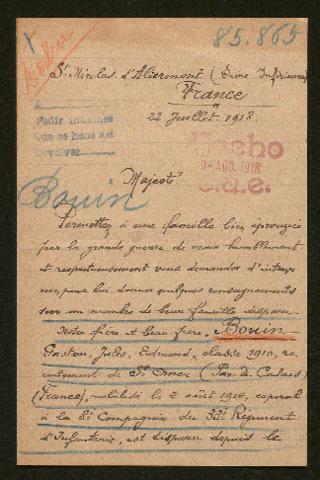 85.865
St Nicolas d'Aliermont (Seine Inférieure)
France
22 Juillet 1918.
Pedir informes
Que se haga así
Devolver
Hecho
9-AGO. 1918
Bouin
Majesté
Permettez à une famille bien éprouvée
par la grande guerre de venir humblement
et respectueusement vous demander d'interve
nir, pour lui donner quelques renseignements
sur un membre de leur famille disparu.
Notre frère et beau frère, Bouin
Gaston, Jules, Edmond, classe 1910, re-
crutement de St Omer (Pas de Calais)
(France), mobilisé le 2 août 1914, caporal
à la 8e Compagnie du 33e Régiment
d'Infanterie, est disparu depuis le